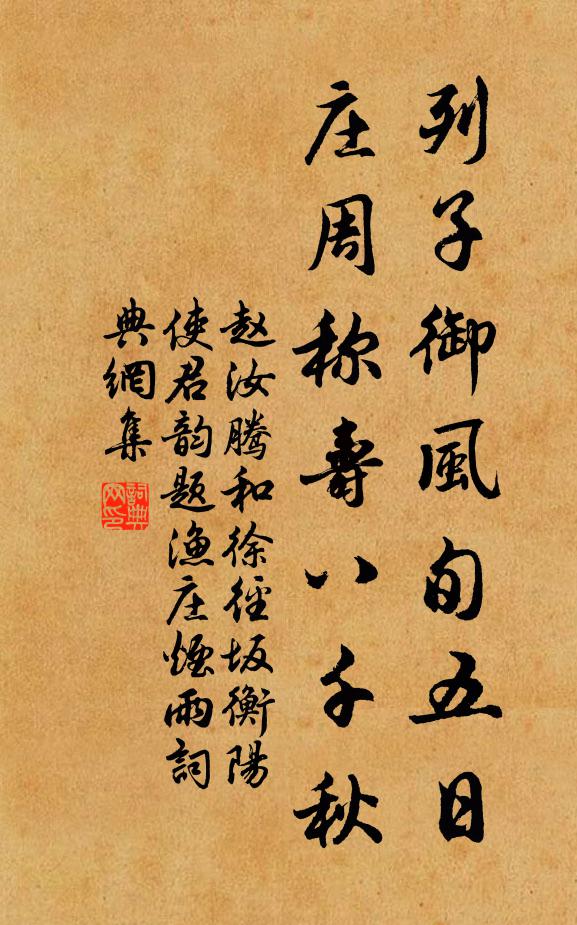 列子御風旬五日
庄周称壽八千秋
赵汝腾和徐径坂衡陽
使君韵题渔庄烟雨詞
典網集
詞典网印